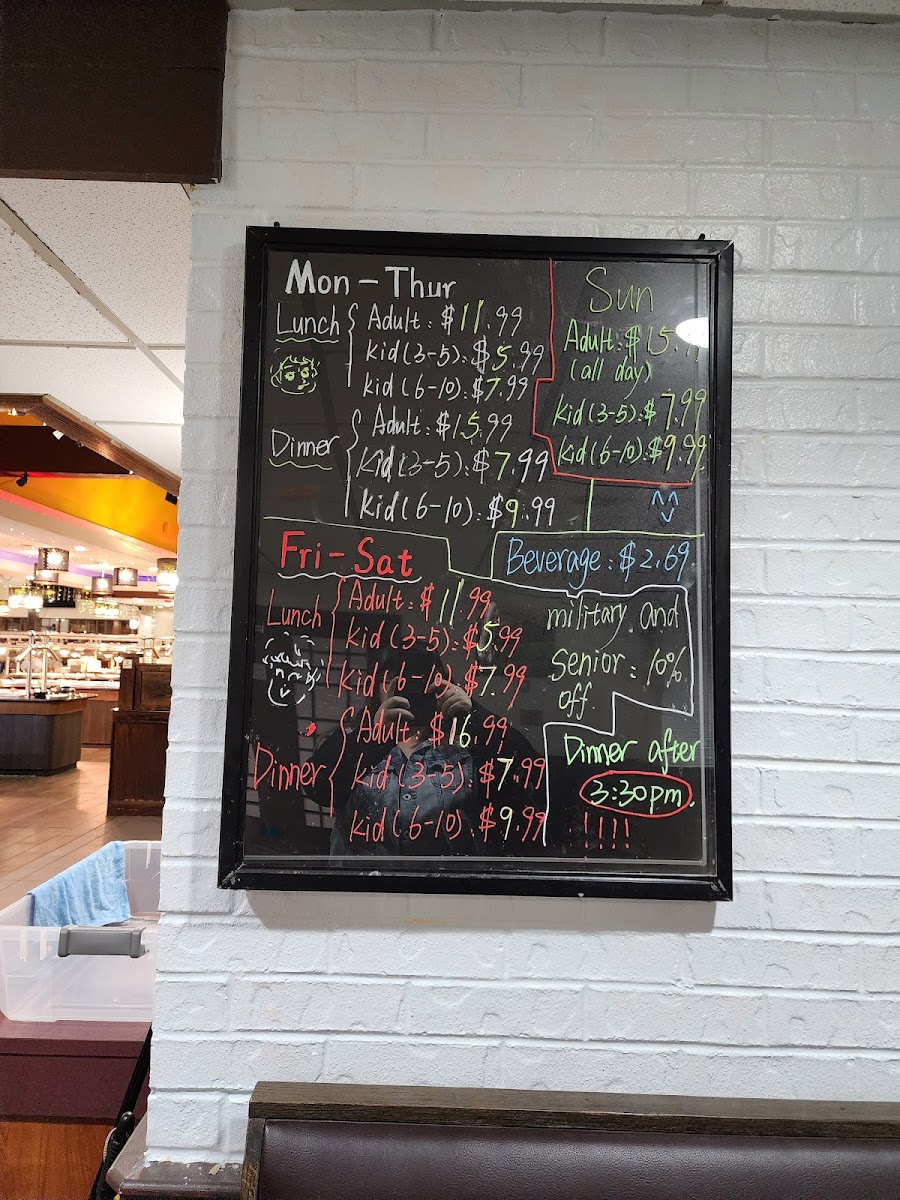 Mon - Thur
Lunch
Adult: $11.99
Kid (3-5): $5.99
Kid (6-10): $7.99
Dinner
Adult: $15.99
Kid (3-5): $7.99
Kid (6-10): $9.99
Sun
Adult: $15.
(all day)
Kid (3-5): $7.99
Kid (6-10): $9.99
Fri - Sat
Lunch
Adult: $11.99
Kid (3-5): $5.99
Kid (6-10): $7.99
Dinner
Adult: $16.99
Kid (3-5): $7.99
Kid (6-10): $9.99
Beverage: $2.69
military and
Senior: 10%
off.
Dinner after
3:30pm.
!!!!